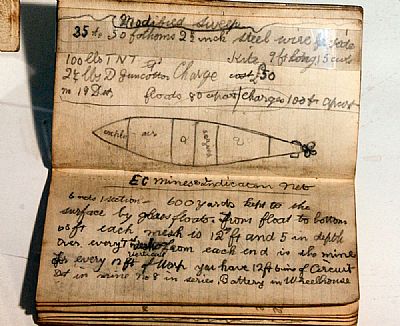 Modified Sweep
35 to 50 fathoms 2½ inch steel wire
100 lbs T N T Kite 9 ft long 15 cwt
2¼ lbs D Guncotton Charge cost £50
m 19 Det floats 80 apart Charges 100 ft apart
air
EC mines indicator net
600 yards kept to the
surface by glass floats. From float to bottom
each mesh is 12 ft and 5 in depth
Over every from each end is two mines
for every 12 ft of warp you have 12 ft 6 ins of Circuit
Det in mine No 8 in series, Battery in Wheelhouse